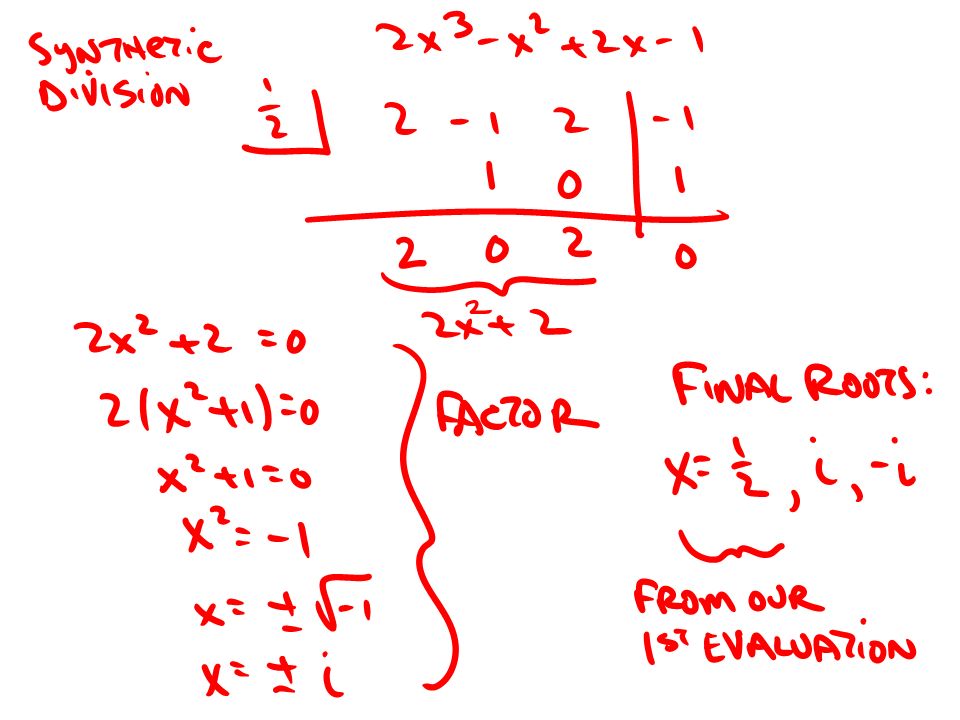 SYNTHETIC
DIVISION
2x³ - x² + 2x - 1
1/2 | 2 -1 2 | -1
1 0 | 1
2 0 2 0
2x² + 2
2x² + 2 = 0
2(x² + 1) = 0
x² + 1 = 0
x² = -1
x = ± √-1
x = ± i
FACTOR
FINAL ROOTS:
x = 1/2, i, -i
FROM OUR
1ST EVALUATION